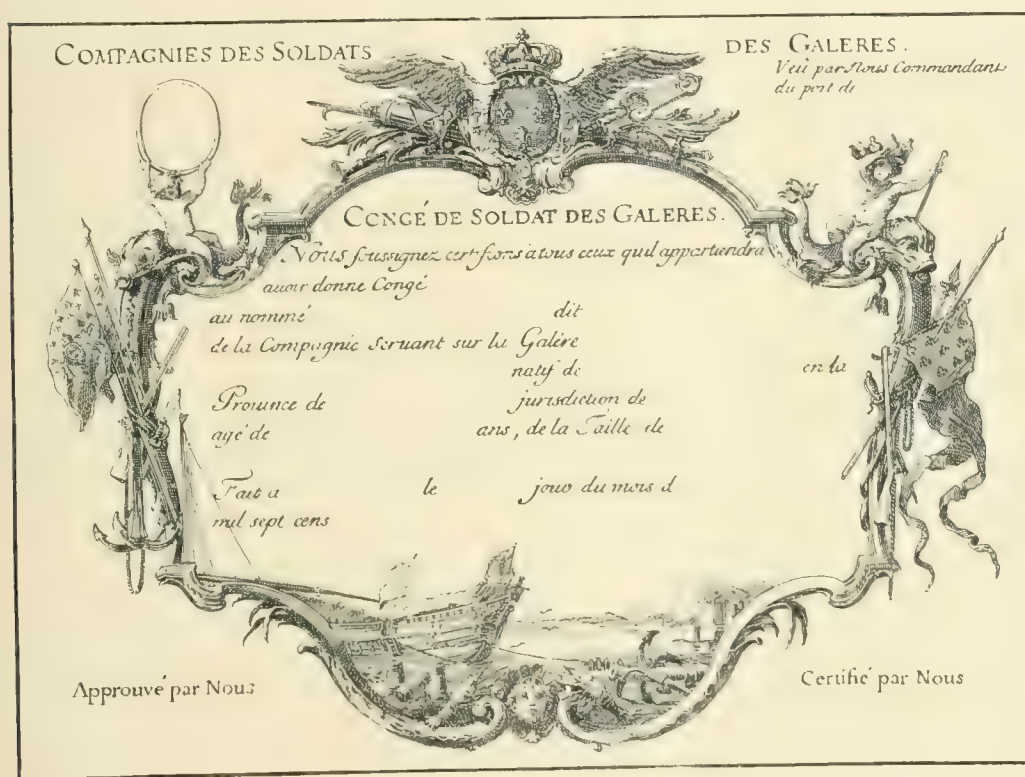 COMPAGNIES DES SOLDATS DES GALERES.
Veû par Nous Commandant
du port de
CONGÉ DE SOLDAT DES GALERES.
Nous soussignez certifions a tous ceux quil appartiendra
auoir donne Congé
au nommé dit
de la Compagnie Seruant sur la Galére
natif de en la
Prouince de jurisdiction de
agé de ans, de la Taille de
Fait a le jour du mois d
mil sept cens
Approuvé par Nous
Certifié par Nous